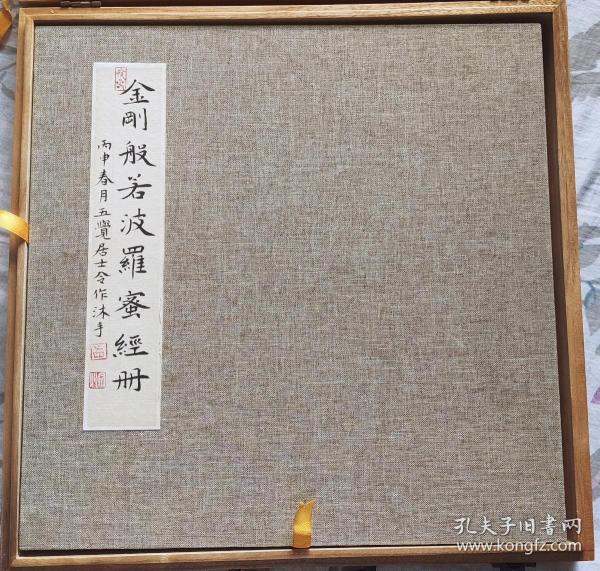 金剛般若波羅蜜經册
丙申春月五覺居士令作沐手
孔夫子旧書网
www.kongfz.com